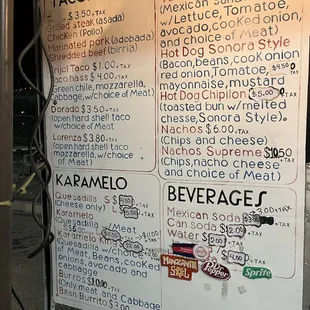 TACO
$3.50
Grilled steak (asada)
Chicken (Pollo)
Marinated pork (adobada)
Shredded beef (birria)
Frijol Taco $1.00 +TAX
Taco hass $4.00 +TAX
(Green chile, mozzarella,
cabbage, w/choice of Meat)
Dorado $3.50 +TAX
(open hard shell taco
w/choice of Meat)
Lorenza $3.80 +TAX
(open hard shell taco
mozzarella, w/choice
of Meat)
Mexican San
w/Lettuce, Tomatoe,
avocado, cooked onion,
and choice of Meat)
Hot Dog Sonora Style
(Bacon, beans, cooked onion
red onion, Tomatoe, $4.50 +TAX
mayonnaise, mustard
Hot Dog Chipilon $5.00 +TAX
(toasted bun w/ melted
cheese, Sonora Style).
Nachos $6.00 +TAX
(Chips and cheese)
Nachos Supreme $10.50 +TAX
(Chips, nacho cheese
and choice of Meat)
KARAMELO
Quesadilla $ +TAX
(Cheese only)
Karamelo
(Quesadilla w/Meat
Karamelo King $11.00 +TAX
(Quesadilla w/choice
of Meat, Beans, cooked
onions, avocado and
cabbage
Burros
(Only meat and Cabbage
Bean Burrito $3.00
BEVERAGES
Mexican Soda $3.00 +TAX
Can soda $2.00 +TAX
Water $2.00 +TAX
MANZANITA
SOL
Dr Pepper
Sprite